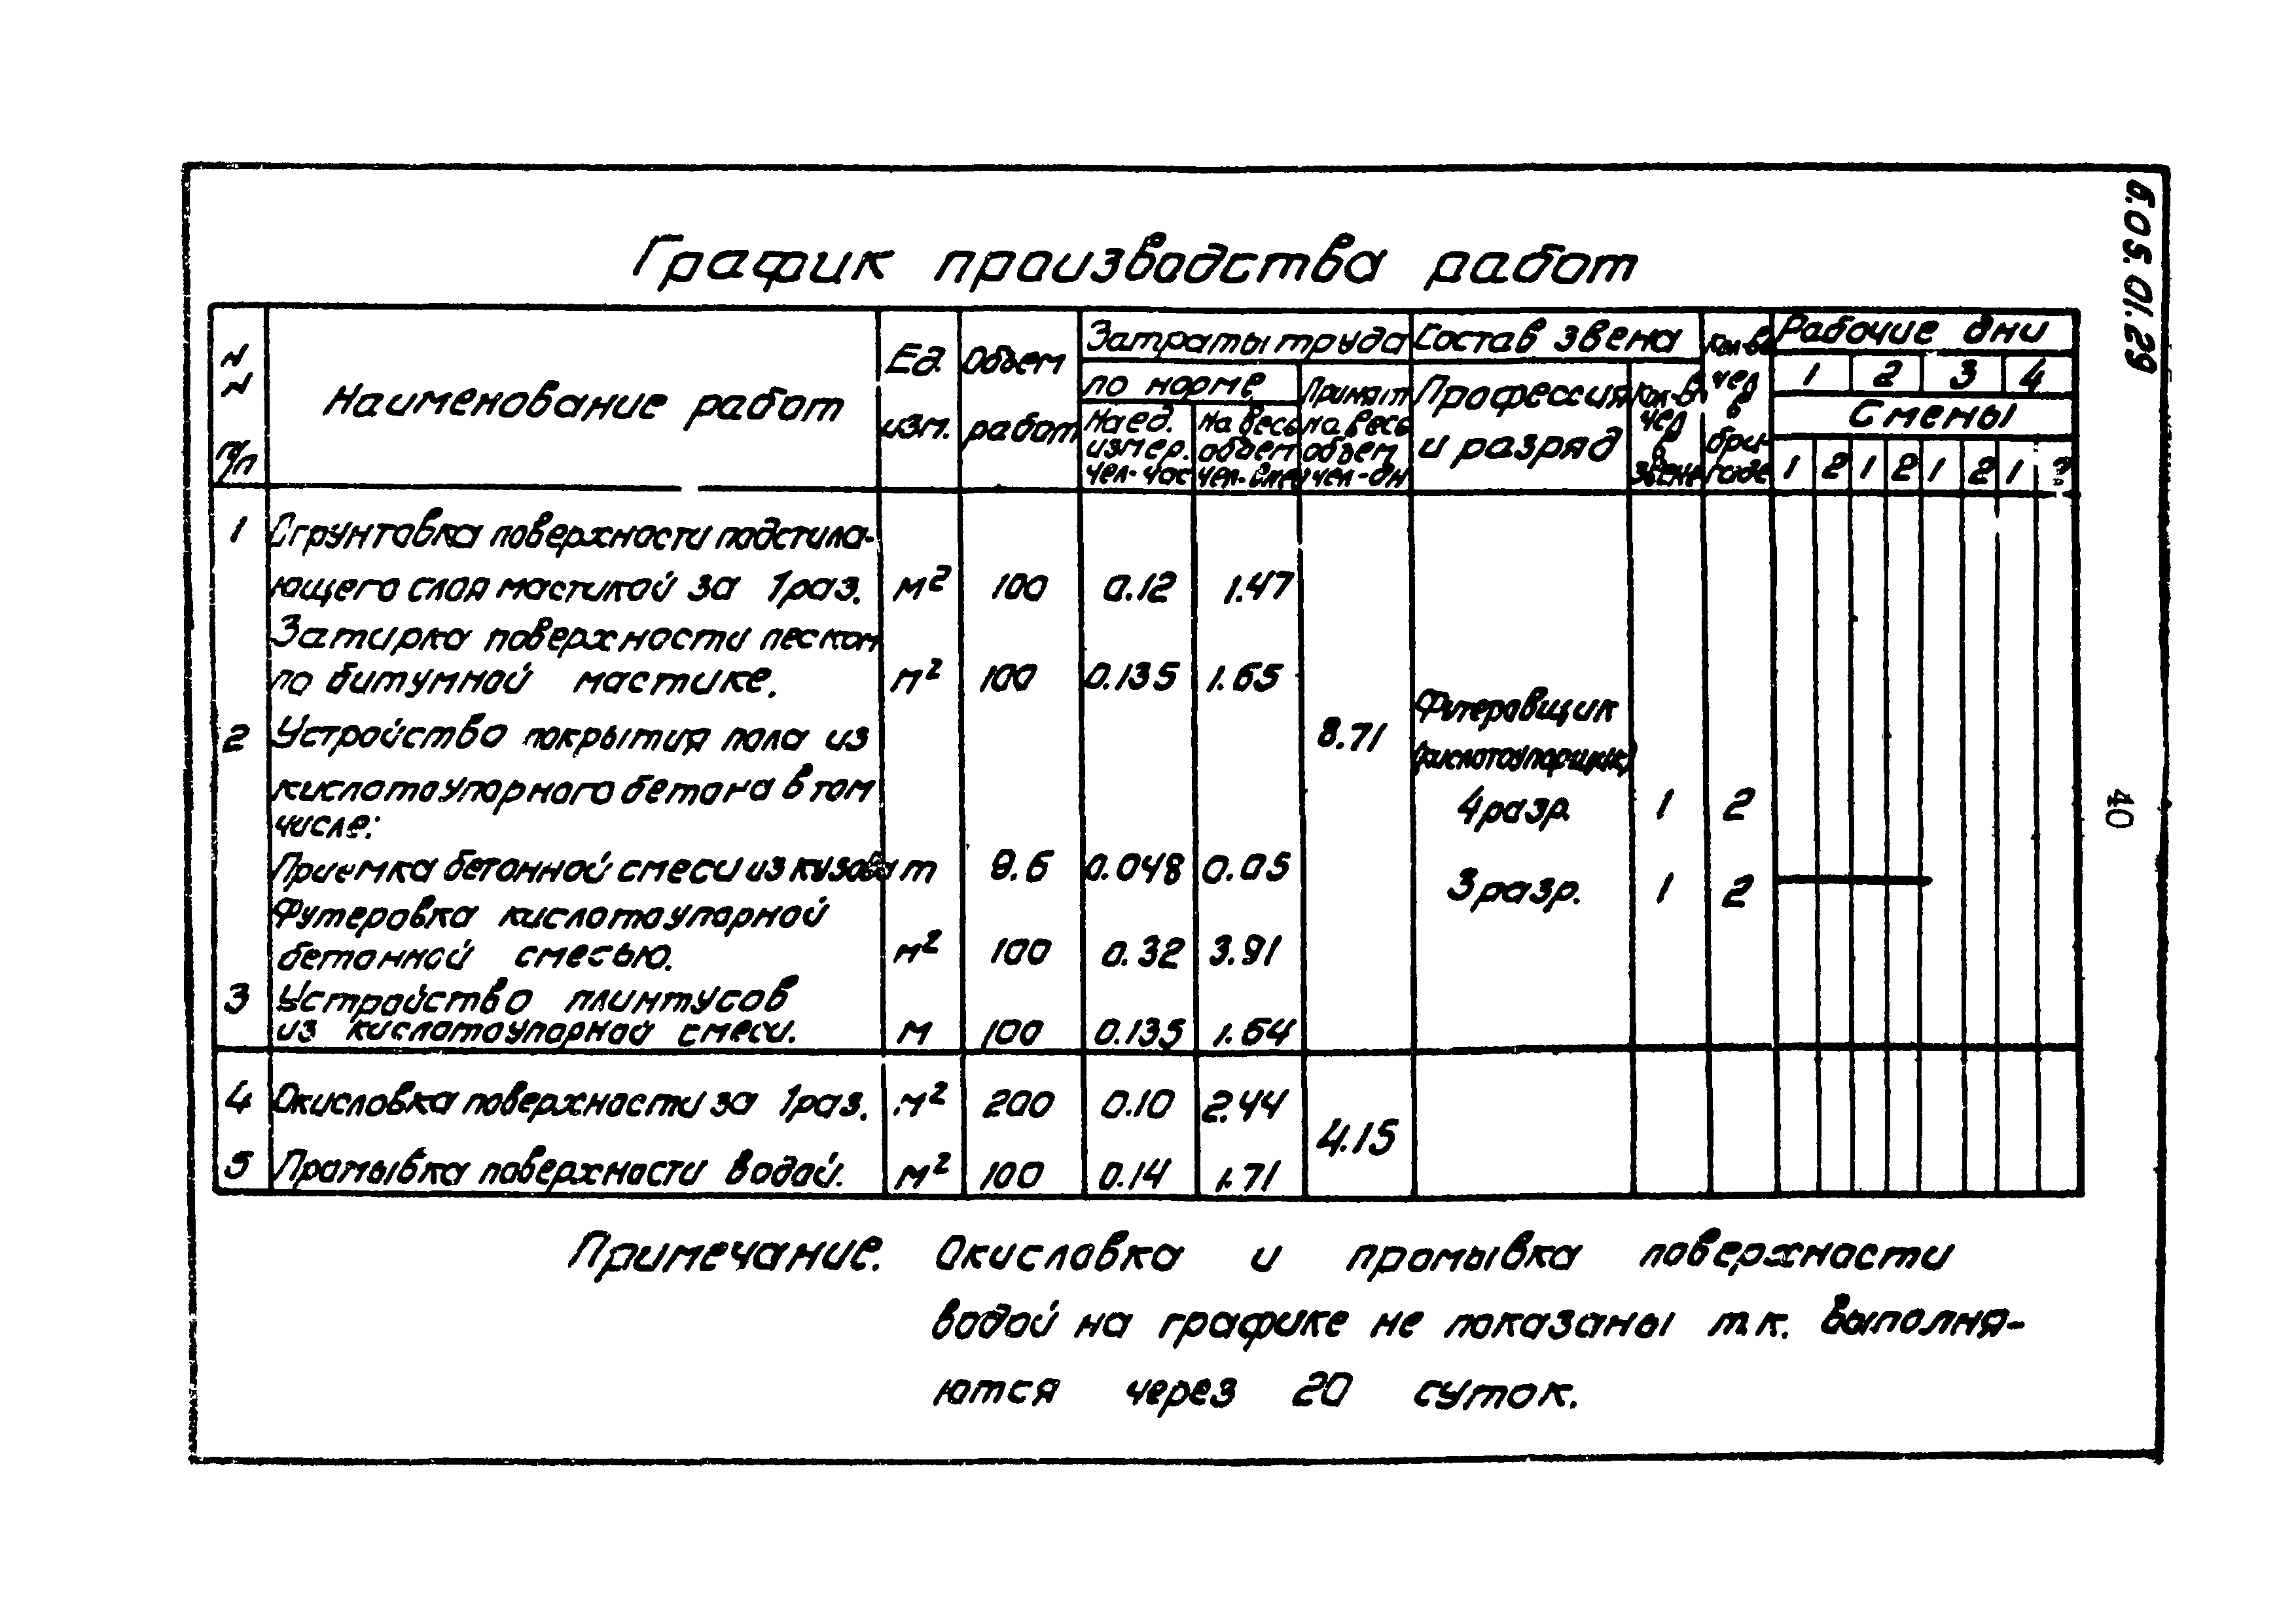 6.05.01.29
График производства работ
N N п/п
Наименование работ
Ед. изм.
Объем работ
Затраты труда
по норме
На ед. измер. чел-час
На весь объем чел-смен
Принят на весь объем чел-дн
Состав звена
Профессия и разряд
Кол-в чел в звене
Кол-во чел в бригаде
Рабочие дни
1 2 3 4
Смены
1 2 1 2 1 2 1 2
1 Огрунтовка поверхности подстила-
ющего слоя мастикой за 1 раз. м² 100 0.12 1.47
Затирка поверхности песком
по битумной мастике. м² 100 0.135 1.65
2 Устройство покрытия пола из
кислотоупорного бетона в том
числе:
Приемка бетонной смеси из кузова т 9.6 0.048 0.05
Футеровка кислотоупорной
бетонной смесью. м² 100 0.32 3.91
3 Устройство плинтусов
из кислотоупорной смеси. м 100 0.135 1.64
8.71
Футеровщик
(кислотоупорщик)
4 разр. 1 2
3 разр. 1 2
4 Окисловка поверхности за 1 раз. м² 200 0.10 2.44
4.15
5 Промывка поверхности водой. м² 100 0.14 1.71
Примечание. Окисловка и промывка поверхности
водой на графике не показаны т.к. выполня-
ются через 20 суток.
40